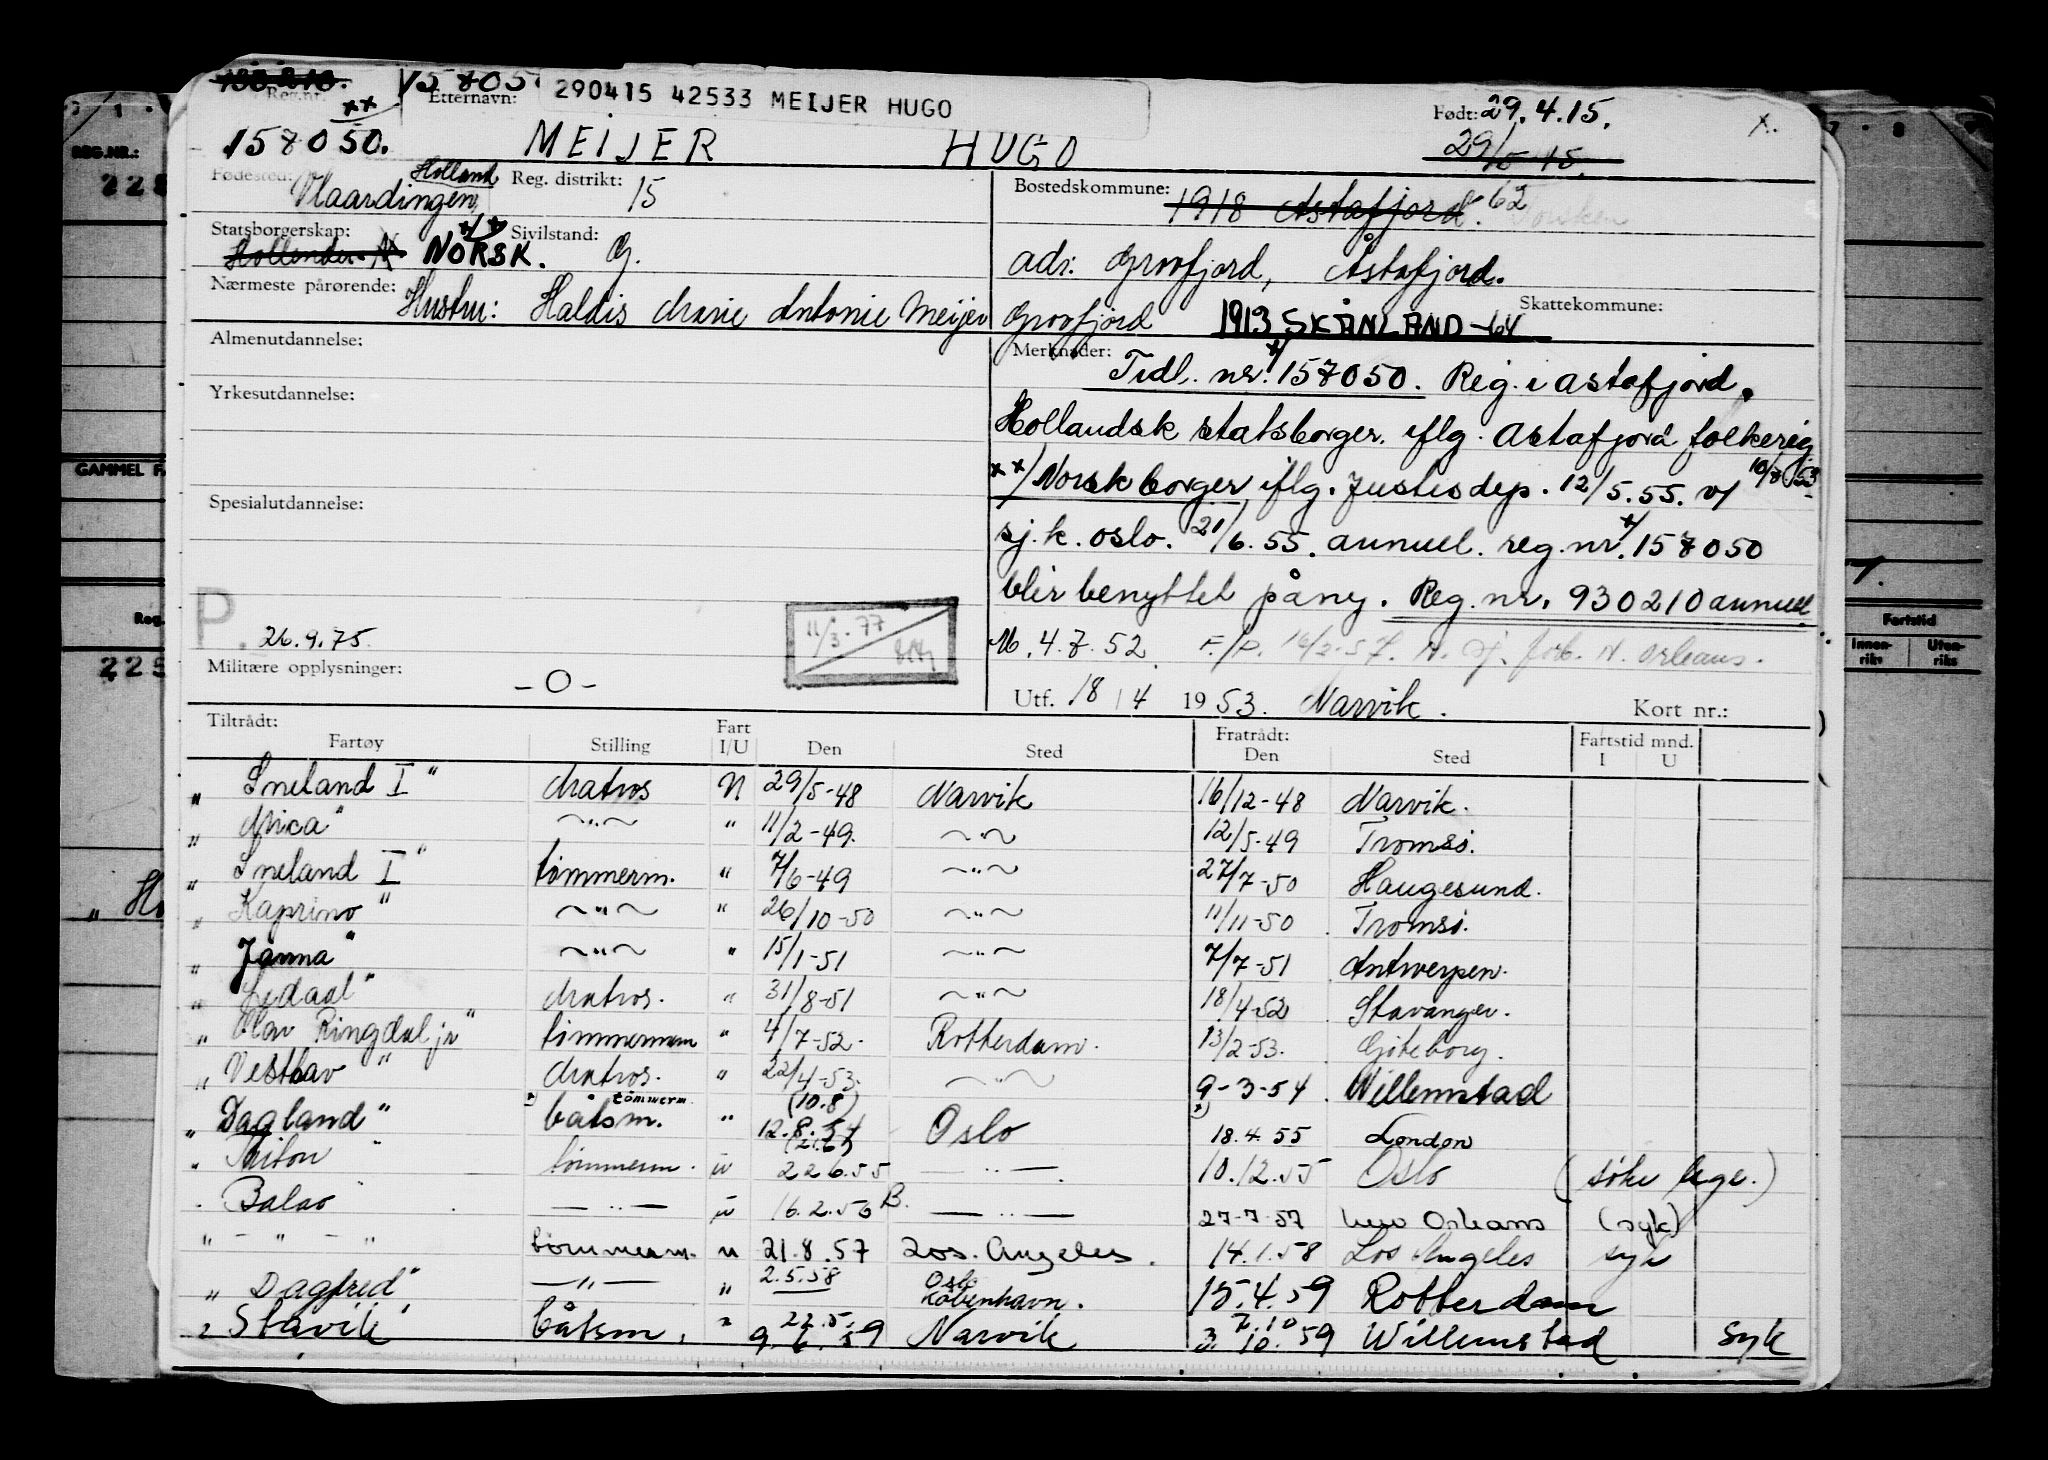 Reg.nr. 15805 Etternavn: 290415 42533 MEIJER HUGO Født: 29.4.15. x.
xx
157050. MEIJER HUGO 29/5-15.
Fødested: Vlaardingen, Holland Reg. distrikt: 15 Bostedskommune: 1918 Astafjord. 62
Statsborgerskap: Hollender NORSK. Sivilstand: G. adr. Grovfjord, Åstafjord.
Nærmeste pårørende: Hustru: Haldis Marie Antonie Meijer Grovfjord 1913 SKÅNLAND-64 Skattekommune:
Almenutdannelse:
Yrkesutdannelse:
Spesialutdannelse:
Merknader: Tidl. nr. 157050. Reg. i Astafjord.
Hollandsk statsborger. iflg. Astafjord folkereg. 10/8 53
xx) Norsk borger iflg. Justisdep. 12/5.55. v/
sj.k. oslo. 21/6.55. annuel. reg.nr. 157050
blir benyttet påny. Reg. nr. 930210 annuel.
M. 4.7.52. F./P. 16/2-57. N. Sj. forb. N. Orleans.
P. 26.9.75. 11/3-77
Militære opplysninger: -0- Utf. 18/4 1953. Narvik. Kort nr.:
Tiltrådt: Fratrådt: Fartstid mnd.
Fartøy Stilling Fart I/U Den Sted Den Sted I U
" Sneland I" Matros N 29/5-48 Narvik 16/12-48 Narvik.
" Mica" ~"~ " 11/2-49. ~"~ 12/5-49 Tromsø.
" Sneland I" tømmerm. " 7/6-49 ~"~ 27/7-50 Haugesund.
" Kaprino" ~"~ " 26/10-50 ~"~ 11/11-50 Tromsø.
" Janna" ~"~ " 15/1-51 ~"~ 7/7-51 Antwerpen.
" Ledaal" Matros. " 31/8-51 ~"~ 18/4-52 Stavanger.
" Olav Ringdal jr" tømmermann " 4/7-52. Rotterdam. 13/2-53. Göteborg.
" Vesthav" Matros. " 22/4-53. ~"~ 9-3-54 Willemstad
" Dagland" båtsm. tømmerm. " (10.8) 12.8.54 Oslo 18.4.55 London
" Triton" tømmerm. u (21.6) 22 6.55 —"— 10.12.55 Oslo (søke lege.)
" Balao —"— u 16.2.56 B. —"— 27-7-57 New Orleans (syk)
" - " - " tømmerm. u 21.8.57 Los. Angeles. 14.1.58 Los Angeles syk
" Dagfred" —"— " 2.5.58 Oslo København. 15.4.59 Rotterdam
" Stavik" båtsm. " 22.5. 9.6.59 Narvik 7.10 3.10.59 Willemstad syk
REG.NR.:
GAMMEL F
Reg.
225
Fartstid
Innenriks Utenriks